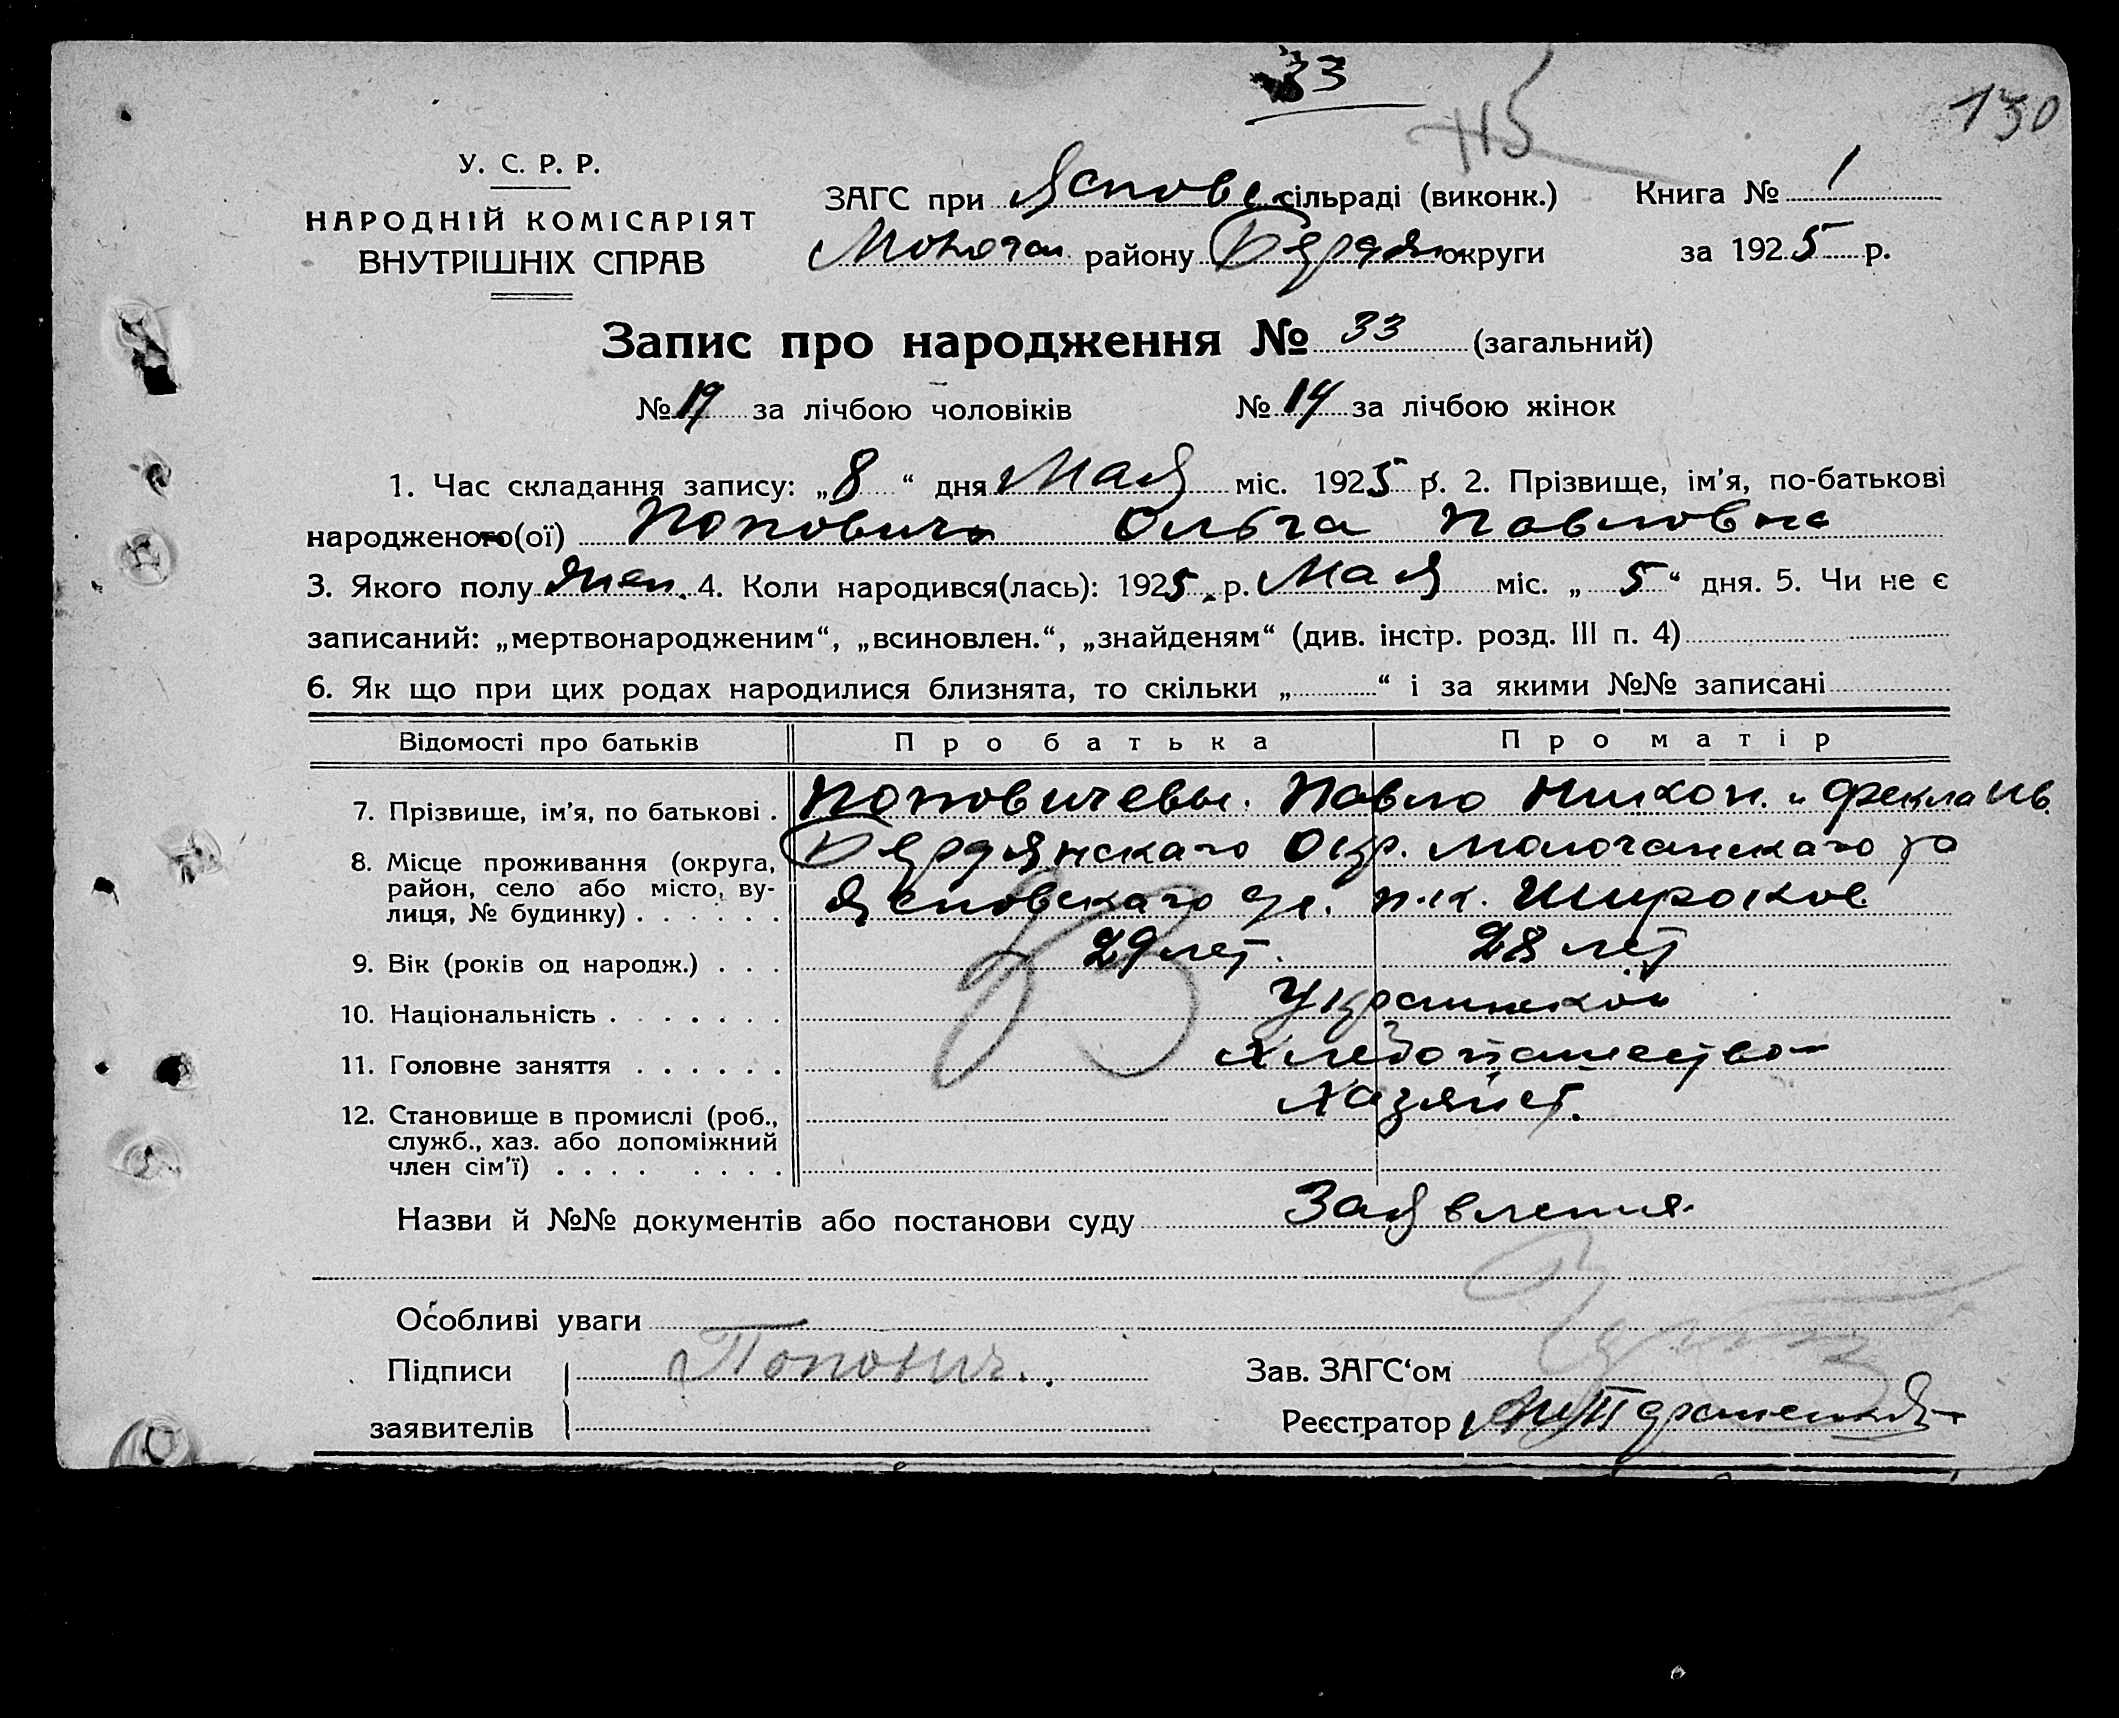 33
115
130
У. С. Р. Р.
НАРОДНІЙ КОМІСАРІЯТ
ВНУТРІШНІХ СПРАВ
ЗАГС при Яснове сільраді (виконк.)
Молочан району Бердян округи
Книга № 1
за 1925 р.
Запис про народження № 33 (загальний)
№ 19 за лічбою чоловіків № 14 за лічбою жінок
1. Час складання запису: „8“ дня Мая міс. 1925 р. 2. Прізвище, ім'я, по-батькові
народженого(ої) Попович Ольга Павловна
3. Якого полу жен. 4. Коли народився(лась): 1925 р. Мая міс. „5“ дня. 5. Чи не є
записаний: „мертвонародженим“, „всиновлен.“, „знайденям“ (див. інстр. розд. III п. 4)
6. Як що при цих родах народилися близнята, то скільки „ “ і за якими №№ записані
Відомості про батьків Про батька Про матір
7. Прізвище, ім'я, по батькові . Поповичевы. Павло Никон. и Фекла Ив.
8. Місце проживання (округа, район, село або місто, вулиця, № будинку) . . . . . . Бердянскаго Окр. Молочанскаго ра
Ясновскаго с/с. п.к. Широков.
33
9. Вік (років од народж.) . . . 29 лет. 28 лет
10. Національність . . . . . . . Украинской
11. Головне заняття . . . . . . Хлебопашество
12. Становище в промислі (роб., служб., хаз. або допоміжний член сім'ї) . . . . . . . . Хазяйст.
Назви й №№ документів або постанови суду Заявления
Особливі уваги
Підписи Попович. Зав. ЗАГС'ом
заявителів Реєстратор